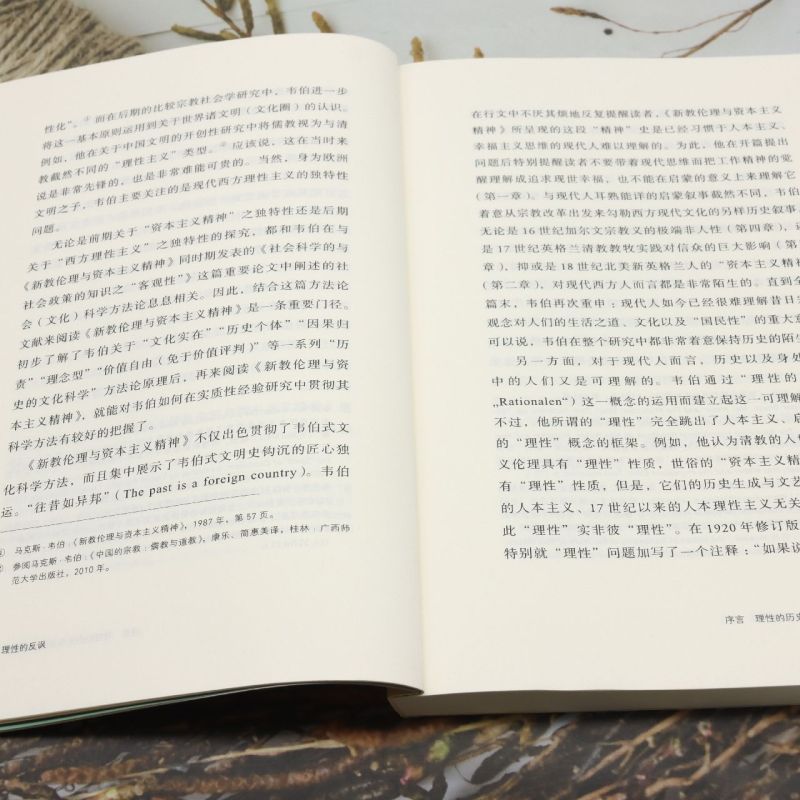 性化”。④而在后期的比较宗教社会学研究中，韦伯进一步
将这一基本原则运用到关于世界诸文明（文化圈）的认识。
例如，他在关于中国文明的开创性研究中将儒教视为与清
教截然不同的“理性主义”类型。应该说，这在当时来
说是非常先锋的，也是非常难能可贵的。当然，身为欧洲
文明之子，韦伯主要关注的是现代西方理性主义的独特性
问题。
无论是前期关于“资本主义精神”之独特性还是后期
关于“西方理性主义”之独特性的探究，都和韦伯在与
《新教伦理与资本主义精神》同时期发表的《社会科学的与
社会政策的知识之“客观性”》这篇重要论文中阐述的社
会（文化）科学方法论息息相关。因此，结合这篇方法论
文献来阅读《新教伦理与资本主义精神》是一条重要门径。
初步了解了韦伯关于“文化实在”“历史个体”“因果归
责”“理念型”“价值自由（免于价值评判）”等一系列“历
史的文化科学”方法论原理后，再来阅读《新教伦理与资
本主义精神》，就能对韦伯如何在实质性经验研究中贯彻其
科学方法有较好的把握了。
《新教伦理与资本主义精神》不仅出色贯彻了韦伯式文
化科学方法，而且集中展示了韦伯式文明史钩沉的匠心独
运。“往昔如异邦”（The past is a foreign country）。韦伯
马克斯·韦伯：《新教伦理与资本主义精神》，1987年，第57页。
参阅马克斯·韦伯：《中国的宗教：儒教与道教》，康乐、简惠美译，桂林：广西师
范大学出版社，2010年。
理性的反讽
在行文中不厌其烦地反复提醒读者，《新教伦理与资本主义
精神》所呈现的这段“精神”史是已经习惯于人本主义、
幸福主义思维的现代人难以理解的。为此，他在开篇提出
问题后特别提醒读者不要带着现代思维而把工作精神的觉
醒理解成追求现世幸福，也不能在启蒙的意义上来理解它
（第一章）。与现代人耳熟能详的启蒙叙事截然不同，韦伯
着意从宗教改革出发来勾勒西方现代文化的另样历史叙事。
无论是16世纪加尔文宗教义的极端非人性（第四章），还
是17世纪英格兰清教教牧实践对信众的巨大影响（第
章），抑或是18世纪北美新英格兰人的“资本主义精神
（第二章），对现代西方人而言都是非常陌生的。直到全
篇末，韦伯再次重申：现代人如今已经很难理解昔日
观念对人们的生活之道、文化以及“国民性”的重大意
可以说，韦伯在整个研究中都非常着意保持历史的陌生
另一方面，对于现代人而言，历史以及身处
中的人们又是可理解的。韦伯通过“理性的
„Rationalen“）这一概念的运用而建立起这一可理解
不过，他所谓的“理性”完全跳出了人本主义、启
的“理性”概念的框架。例如，他认为清教的人
义伦理具有“理性”性质，世俗的“资本主义精
有“理性”性质，但是，它们的历史生成与文艺
的人本主义、17世纪以来的人本理性主义无关
此“理性”实非彼“理性”。在1920年修订版
特别就“理性”问题加写了一个注释：“如果说
序言 理性的历史